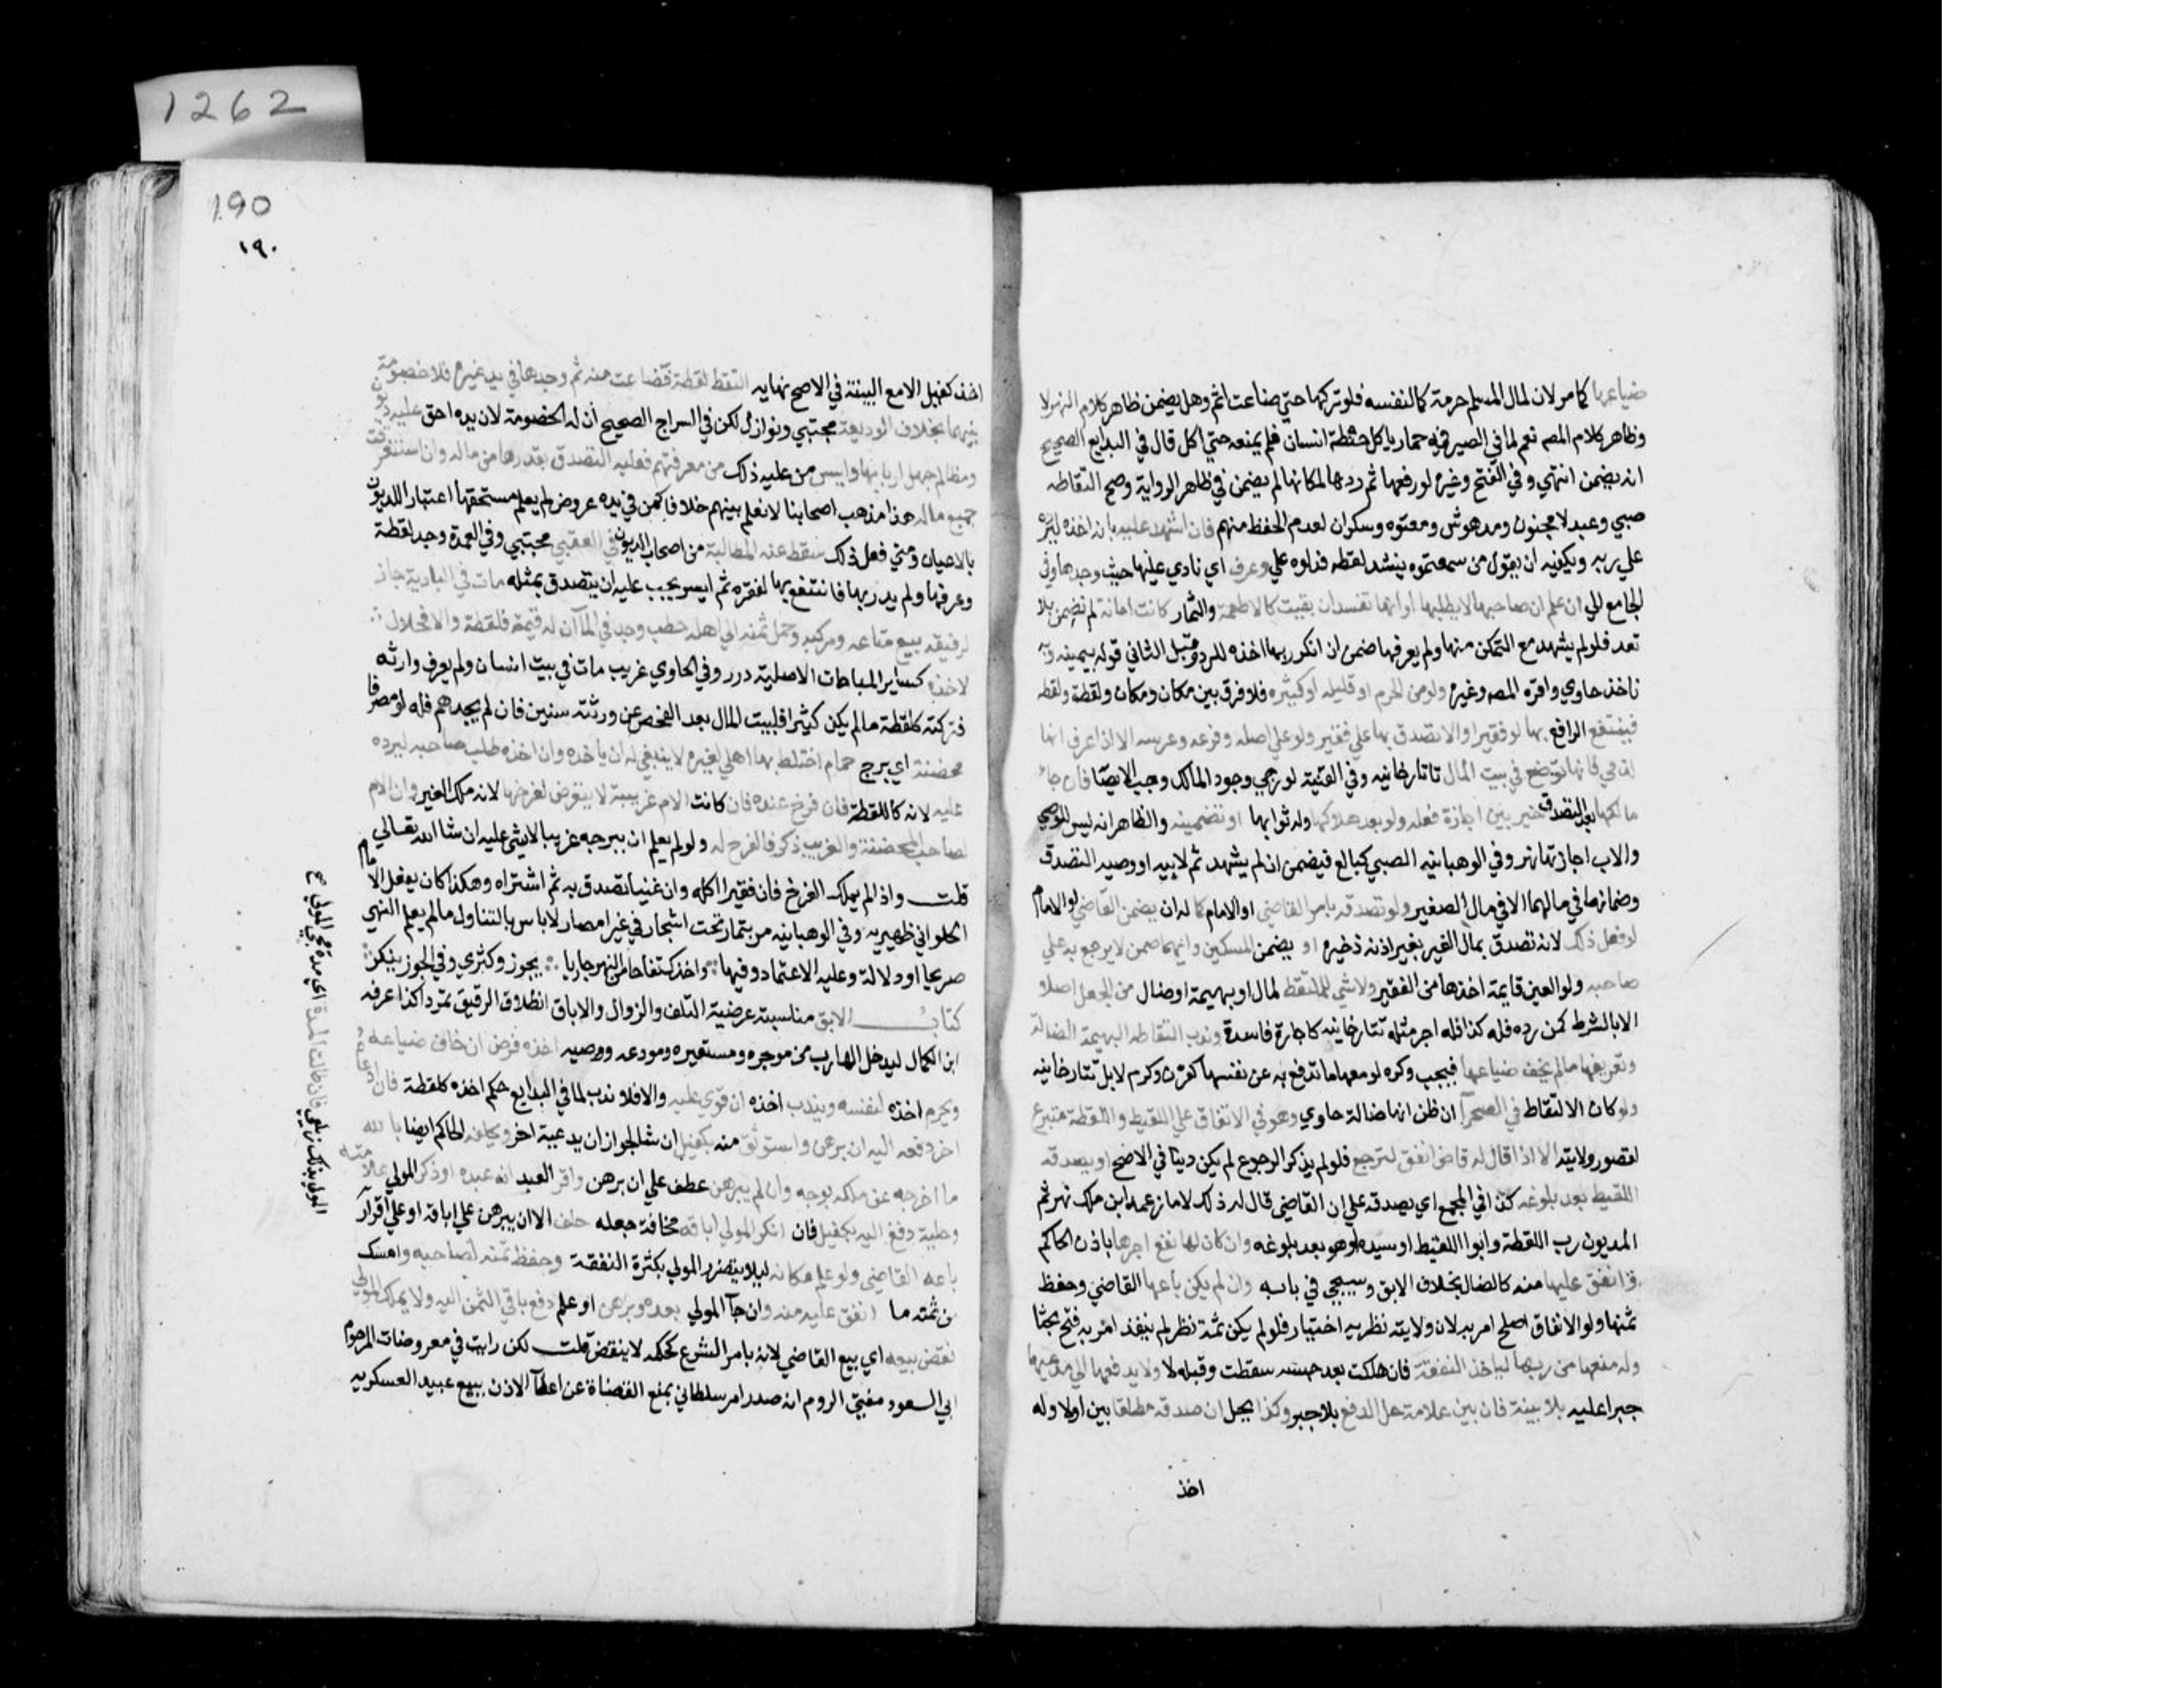 ضياعها كما مر لان لمال المسلم حرمة كما لنفسه فلو تركها حتي ضاعت اثم وهل يضمن ظاهر كلام النهر لا
وظاهر كلام المص نعم لما في الصيرفيه حمار ياكل حنطة انسان فلم يمنعه حتي اكل قال في البدايع الصحيح
انه يضمن انتهي وفي الفتح وغيره لو رفعها ثم ردها لمكانها لم يضمن في ظاهر الرواية وصح التقاطه
صبي وعبد لا مجنون ومدهوش ومعتوه وسكران لعدم الحفظ منهم فان اشهد عليه بانه اخذه ليرده
علي ربه ويكفيه ان يقول من سمعتموه ينشد لقطه فدلوه علي وعرف اي نادي عليها حيث وجدها وفي
الجامع الي ان علم ان صاحبها لا يطلبها او انها تفسد ان بقيت كالاطعمة والثمار كانت امانة لم تضمن بلا
تعد فلو لم يشهد مع التمكن منها ولم يعرفها ضمن ان انكر ربها اخذه للرد وقبل الثاني قوله بيمينه وبه
ناخذ حاوي واقره المص وغيره ولو من الحرم او قليله او كثيره فلا فرق بين مكان ومكان ولقطة ولقطه
فينتفع الرافع بها لو فقيرا والا تصدق بها علي فقير ولو علي اصله وفرعه وعرسه الا اذا عرف انها
لذمي فانها توضع في بيت المال تاتارخانيه وفي القنية لو رجي وجود المالك وجب الايصا فان جاء
مالكها بعد التصدق خير بين اجازة فعله ولو بعد هلاكها وله ثوابها او تضمينه والظاهر انه ليس للوصي
والاب اجازتها نهر وفي الوهبانيه الصبي كبالغ فيضمن ان لم يشهد ثم لابيه او وصيه التصدق
وضمانها في مالهما لا في مال الصغير ولو تصدق بامر القاضي او الامام كما له ان يضمن القاضي او الامام
لو فعل ذلك لانه تصدق بمال الغير بغير اذنه ذخيره او يضمن المسكين وايهما ضمن لا يرجع به علي
صاحبه ولو العين قايمة اخذها من الفقير ولا شي للملتقط لمال او بهيمة او ضال من الجعل اصلا
الا بالشرط كمن رده فله كذا فله اجر مثله تتارخانيه كاجارة فاسدة وندب التقاط البهيمة الضالة
وتعريفها ما لم يخف ضياعها فيجب وكره لو معها ما تدفع به عن نفسها كقرن وكدم لابل تتارخانيه
ولو كان الالتقاط في الصحرآ ان ظن انها ضالة حاوي وهو في الانفاق علي اللقيط واللقطة متبرع
لقصور ولايته الا اذا قال له قاض انفق لترجع فلو لم يذكر الرجوع لم يكن دينا في الاصح او يصدقه
اللقيط بعد بلوغه كذا في المجمع اي يصدقه علي ان القاضي قال له ذلك لا ما زعمه ابن ملك نهر ثم
المديون رب اللقطة وابو اللقيط او سيده او هو بعد بلوغه وان كان لها نفع اجرها باذن الحاكم
وانفق عليها منه كالضال بخلاف الابق وسيجي في بابه وان لم يكن باعها القاضي وحفظ
ثمنها ولو الانفاق اصلح امر به لان ولايته نظريه اختيار فلو لم يكن ثمة نظر لم ينفذ امر به فتح بحثا
وله منعها من ربها لياخذ النفقة فان هلكت بعد حبسه سقطت وقبله لا ولا يدفعها الي مدعيها
جبرا عليه بلا بينة فان بين علامة حل الدفع بلا جبر وكذا يحل ان صدقه مطلقا بين اولا وله
اخذ
1262
190
١٩٠
اخذ كفيل الا مع البينة في الاصح نهايه التقط لقطة فضاعت منه ثم وجدها في يد غيره فلا خصومة
بينهما بخلاف الوديعة مجتبي ونوازل لكن في السراج الصحيح ان له الخصومة لان يده احق عليه ديون
ومظالم جهل اربابها وايس من عليه ذلك من معرفتهم فعليه التصدق بقدرها من ماله وان استغرقت
جميع ماله هذا مذهب اصحابنا لا نعلم بينهم خلافا كمن في يده عروض لم يعلم مستحقها اعتبار اللديون
بالاعيان ومتي فعل ذلك سقط عنه المطالبة من اصحاب الديون في العقبي مجتبي وفي العمدة وجد لقطة
وعرفها ولم يدر ربها فانتفع بها لفقره ثم ايسر يجب عليه ان يتصدق بمثله مات في البادية جاز
لرفيقه بيع متاعه ومركبه وحمل ثمنه الي اهله حطب وجد في المآ ان له قيمة فلقطة والا فحلال
لاخذه كساير المباحات الاصلية درر وفي الحاوي غريب مات في بيت انسان ولم يعرف وارثه
فتركته كلقطة ما لم يكن كثيرا فلبيت المال بعد الفحص عن ورثته سنين فان لم يجدهم فله لو مصرفا
محضنة اي برج حمام اختلط بها اهلي لغيره لا ينبغي له ان ياخذه وان اخذه طلب صاحبه ليرده
عليه لانه كاللقطة فان فرخ عنده فان كانت الام غريبة لا يتعرض لفرخها لانه ملك الغير وان الام
لصاحب المحضنة والغريب ذكر فالفرخ له ولو لم يعلم ان ببرجه غريبا لا شي عليه ان شا الله تعالي
قلت واذا لم يملك الفرخ فان فقيرا اكله وان غنيا تصدق به ثم اشتراه وهكذا كان يفعل الامام
الحلواني ظهيريه وفي الوهبانيه مر بثمار تحت اشجار في غير امصار لا باس بالتناول ما لم يعلم النهي
صريحا او دلالة وعليه الاعتماد وفيها واخذك تفاحا من النهر جاريا يجوز وكثري وفي الجوز ينكر
كتاب الابق مناسبته عرضية التلف والزوال والاباق انطلاق الرقيق تمردا كذا عرفه
ابن الكمال ليدخل الهارب من موجره ومستعيره ومودعه ووصيه اخذه فرض ان خاف ضياعه
ويحرم اخذه لنفسه ويندب اخذه ان قوي عليه والا فلا ندب لما في البدايع حكم اخذه كلقطة فان ادعاه
اخر دفعه اليه ان برهن واستوثق منه بكفيل ان شا لجواز ان يدعيه اخر ويحلفه الحاكم ايضا بالله
ما اخرجه عن ملكه بوجه وان لم يبرهن عطف علي ان برهن واقر العبد انه عبده او ذكر المولي علامته
وحليته دفع اليه بكفيل فان انكر المولي اباقه مخافة جعله حلف الا ان يبرهن علي اباقه او علي اقرار
باعه القاضي ولو علم مكانه ليلا يتضرر المولي بكثرة النفقة وحفظ ثمنه لصاحبه وامسك
من ثمنه ما انفق عليه منه وان جآ المولي بعده وبرهن او علم دفع باقي الثمن اليه ولا يملك المولي
نقض بيعه اي بيع القاضي لانه بامر الشرع كحكمه لا ينقض قلت لكن رايت في معروضات المرحوم
ابي السعود مفتي الروم انه صدر امر سلطاني بمنع القضاة عن اعطآ الاذن ببيع عبيد العسكريه
المولي بذلك زيلعي فان طالت المدة اي مدة مجي المولي صح